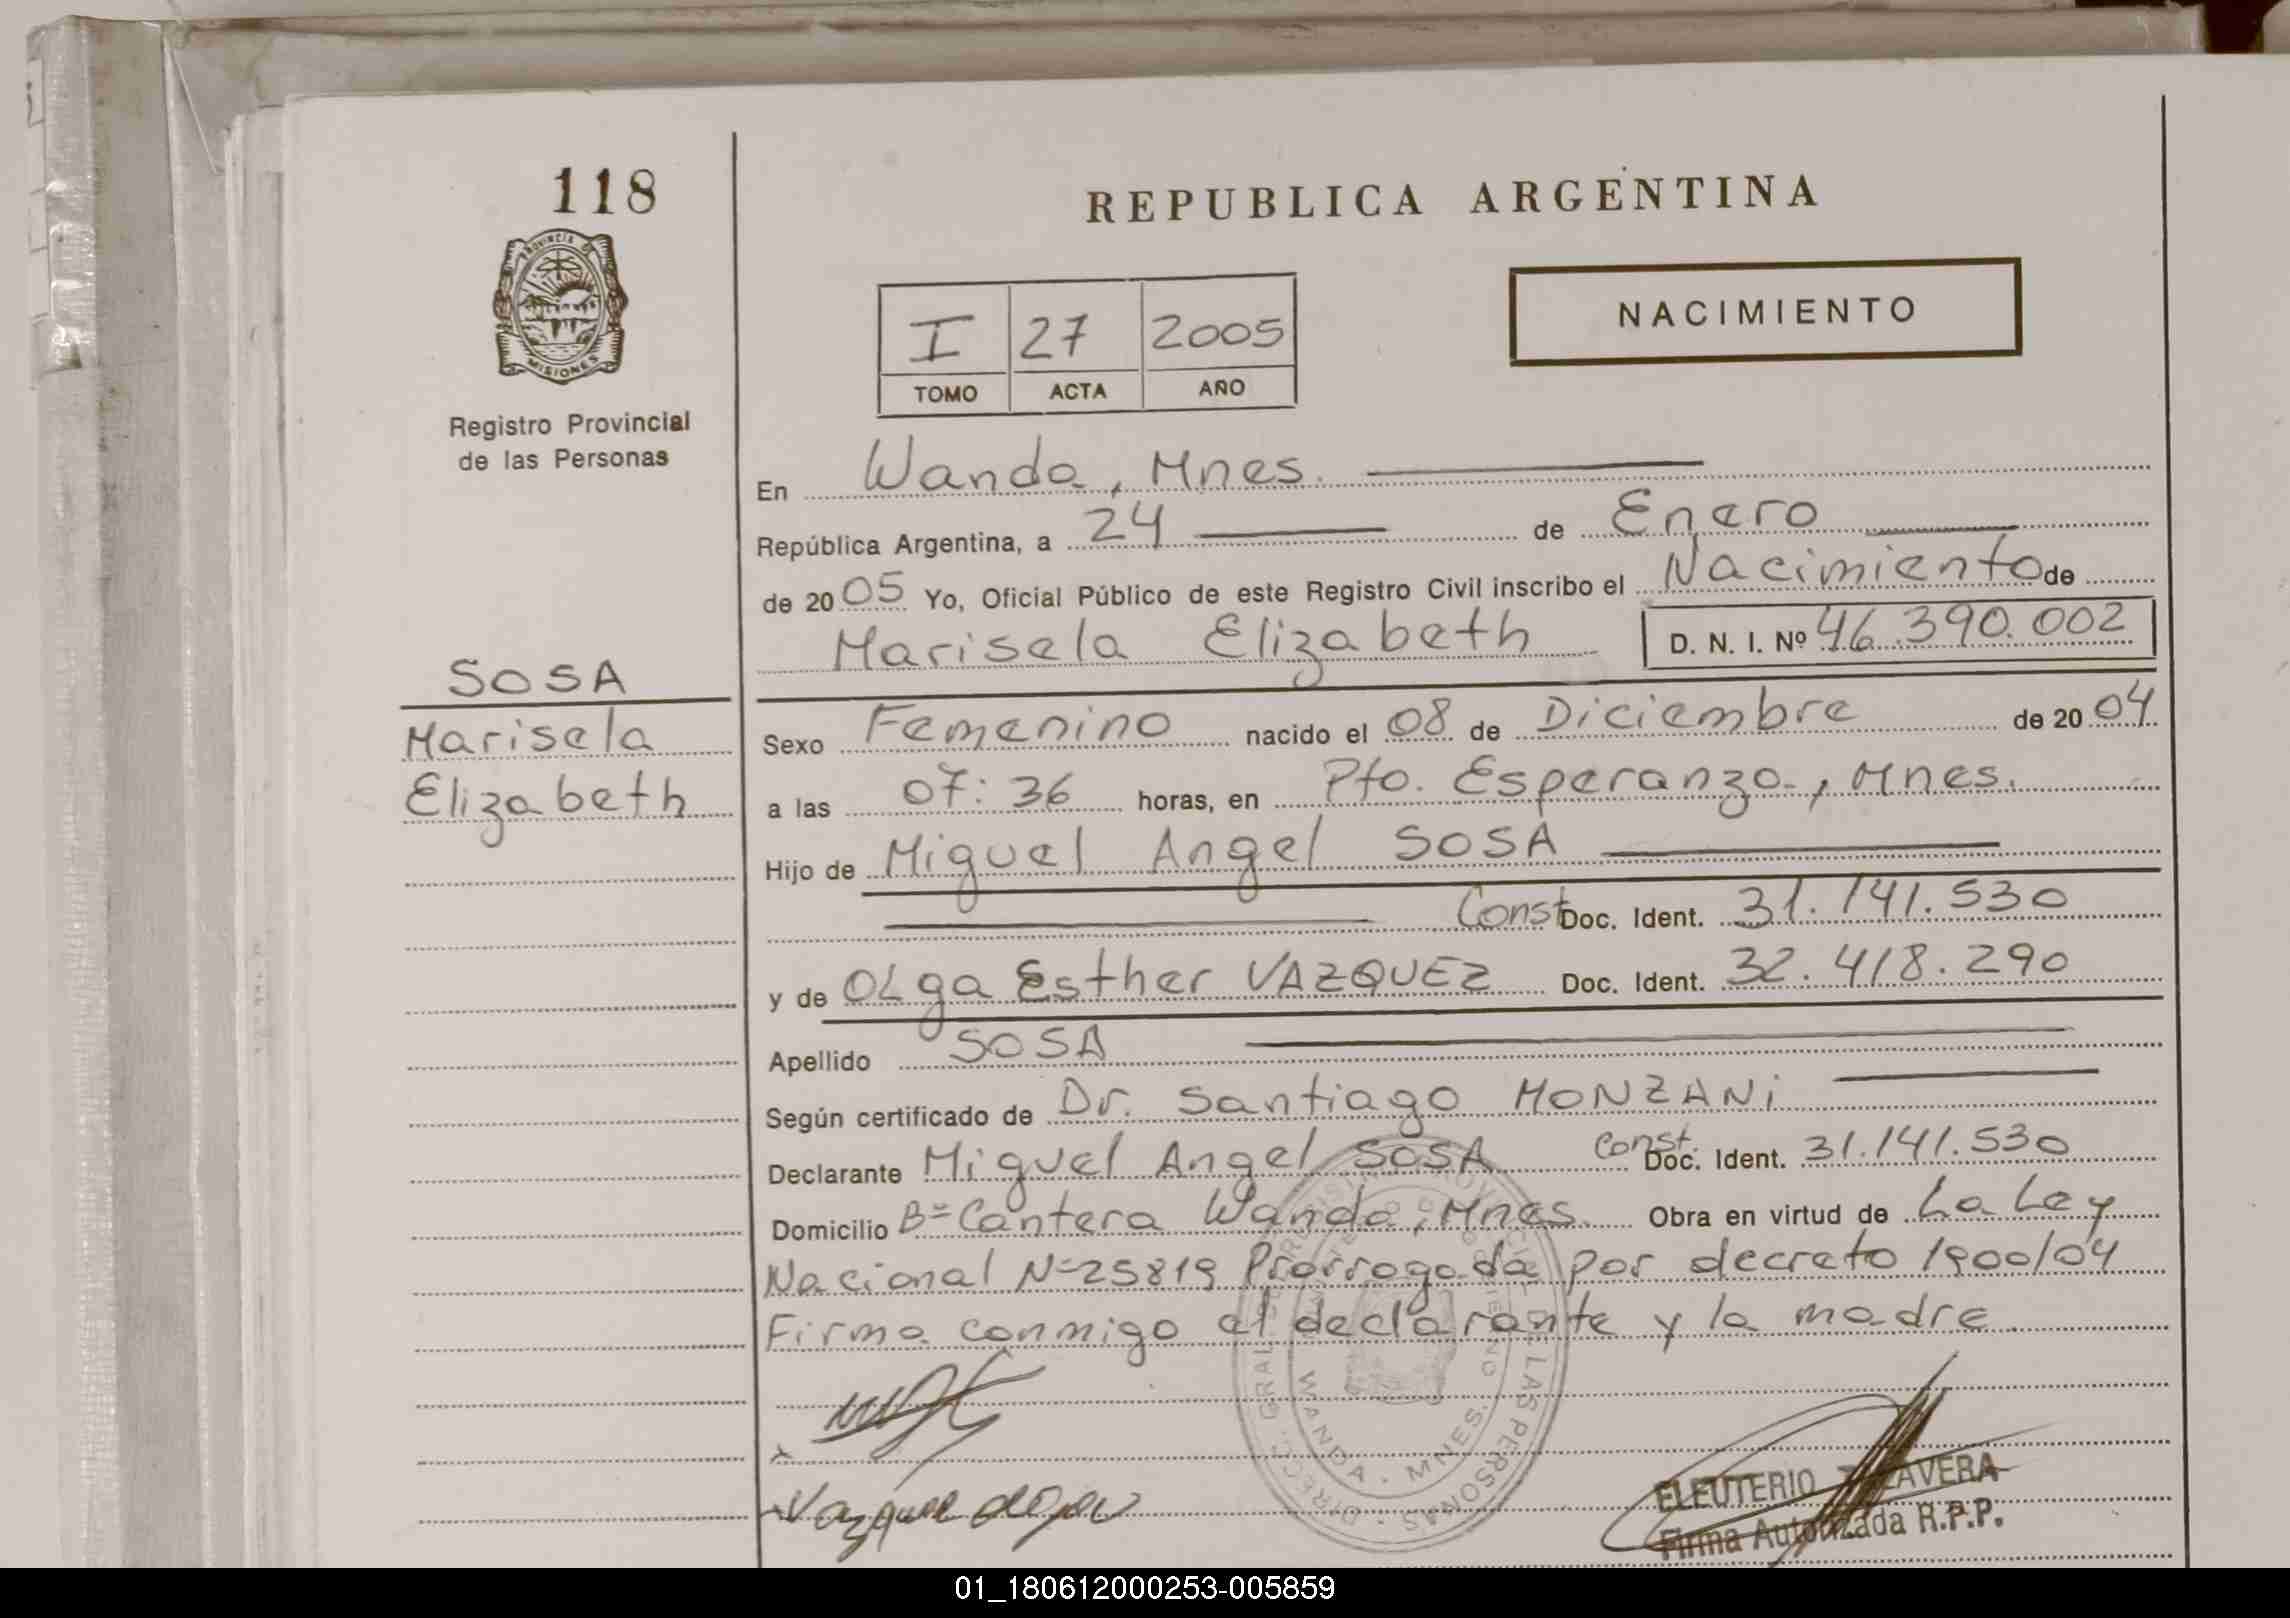 118
PROVINCIA DE
MISIONES
Registro Provincial
de las Personas
REPUBLICA ARGENTINA
NACIMIENTO
I 27 2005
TOMO ACTA AÑO
En Wanda, Mnes.
República Argentina, a 24 de Enero
de 2005 Yo, Oficial Público de este Registro Civil inscribo el Nacimiento de
Marisela Elizabeth D. N. I. Nº 46.390.002
SOSA
Marisela
Elizabeth
Sexo Femenino nacido el 08 de Diciembre de 2004
a las 07:36 horas, en Pto. Esperanza, Mnes.
Hijo de Miguel Angel SOSA
Const Doc. Ident. 31.141.530
y de OLga Esther VAZQUEZ Doc. Ident. 32.418.290
Apellido SOSA
Según certificado de Dr. Santiago MONZANi
Declarante Miguel Angel SOSA Const. Doc. Ident. 31.141.530
Domicilio Bº Cantera Wanda, Mnes. Obra en virtud de La Ley
Nacional Nº 25819 Prorrogada por decreto 1900/04
Firma conmigo el declarante y la madre
WANDA - MNES.
Vazquez
ELEUTERIO TALAVERA
Firma Autorizada R.P.P.
01_180612000253-005859